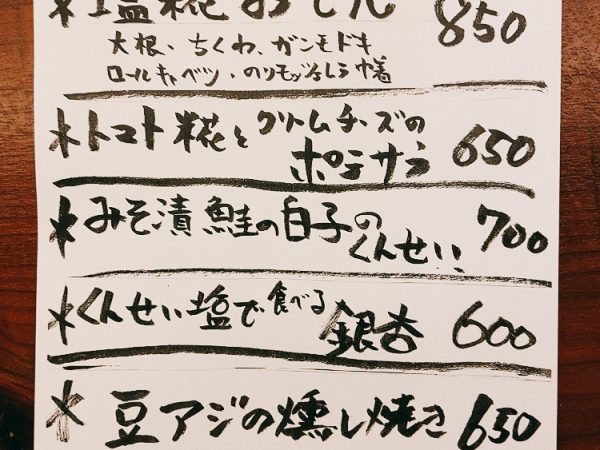 *塩糀おでん 850
大根・ちくわ、ガンモドキ
ロールキャベツ・のりモッツァしらす巾着
*トマト糀とクリームチーズの
ポテサラ 650
*みそ漬鮭の白子の
くんせい 700
*くんせい塩で食べる
銀杏 600
*豆アジの燻し焼き 650